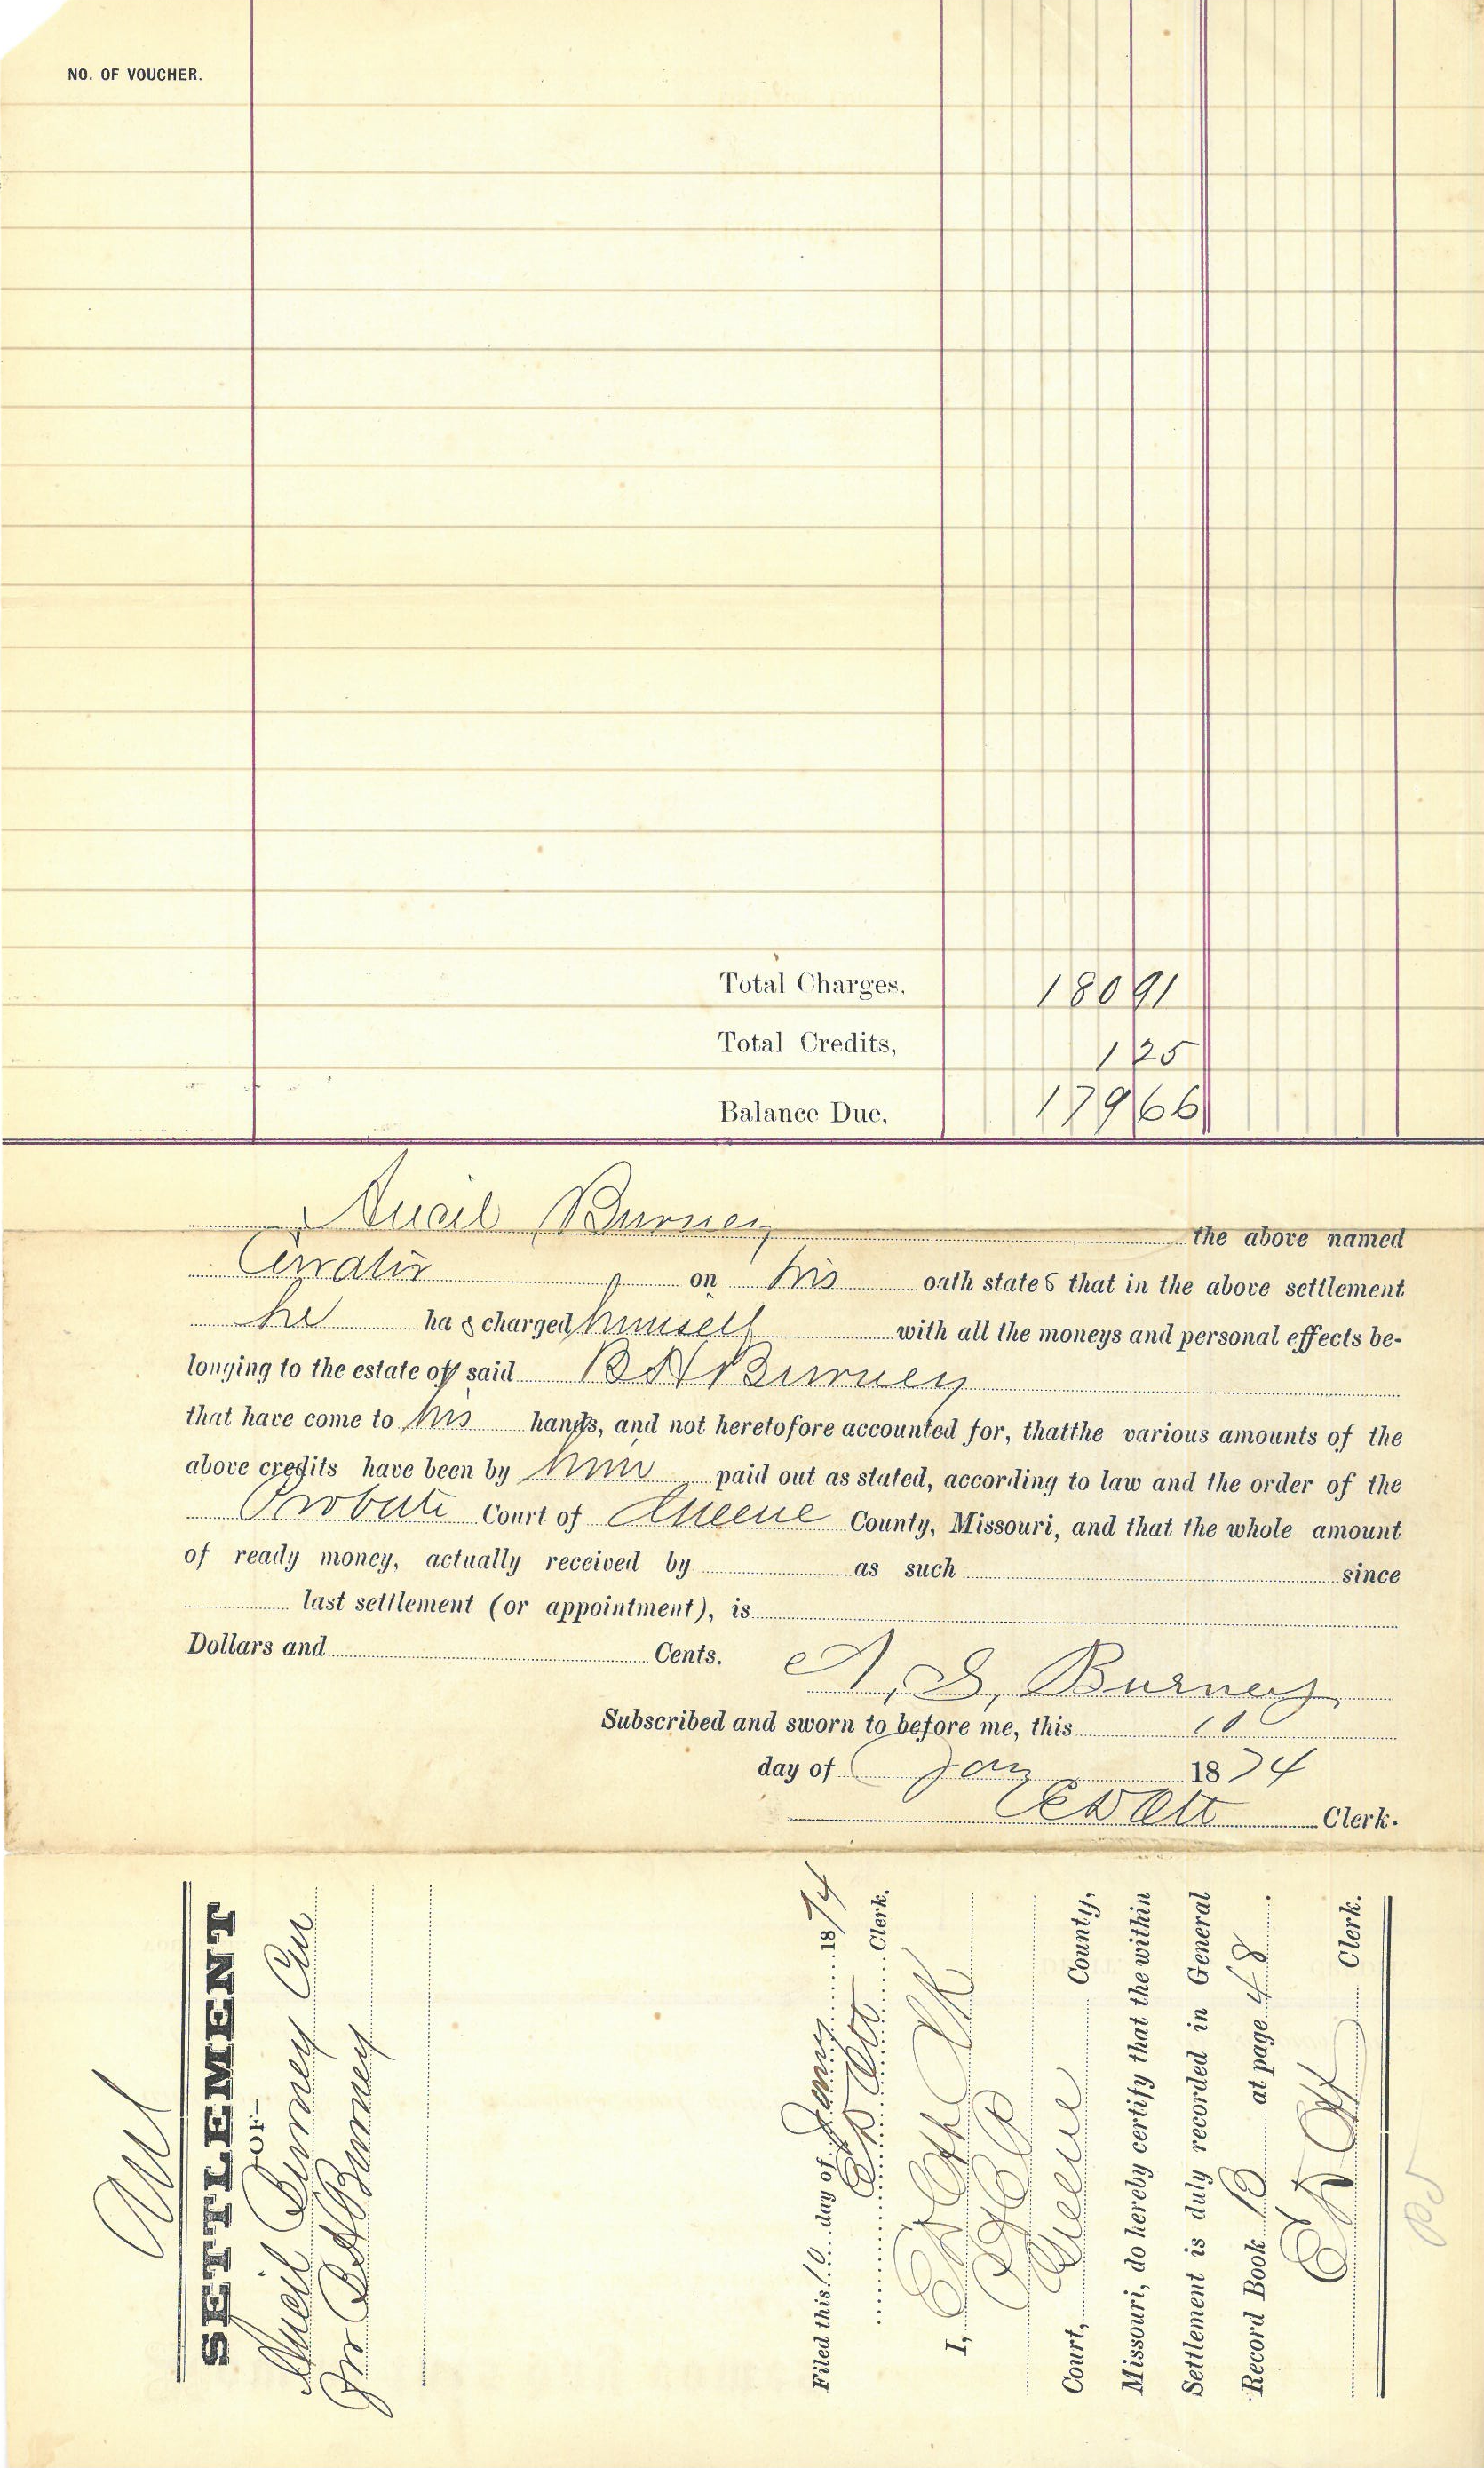 NO. OF VOUCHER.
Total Charges, 180 91
Total Credits, 1 25
Balance Due, 179 66
Burney the above named
Curator on his oath states that in the above settlement
he has charged himself with all the moneys and personal effects be-
longing to the estate of said B H Burney
that have come to his hands, and not heretofore accounted for, thatthe various amounts of the
above credits have been by him paid out as stated, according to law and the order of the
Probate Court of Greene County, Missouri, and that the whole amount
of ready money, actually received by as such since
last settlement (or appointment), is
Dollars and Cents.
A, S, Burney
Subscribed and sworn to before me, this 10
day of Jan 1874
E D Ott Clerk.
SETTLEMENT
-OF-
Burney Cur
for B H Burney
Filed this 10 day of Jany 1874
E D Ott Clerk.
I, E D Ott Clk
Court, Greene County,
Missouri, do hereby certify that the within
Settlement is duly recorded in General
Record Book B at page 48.
E D Ott Clerk.